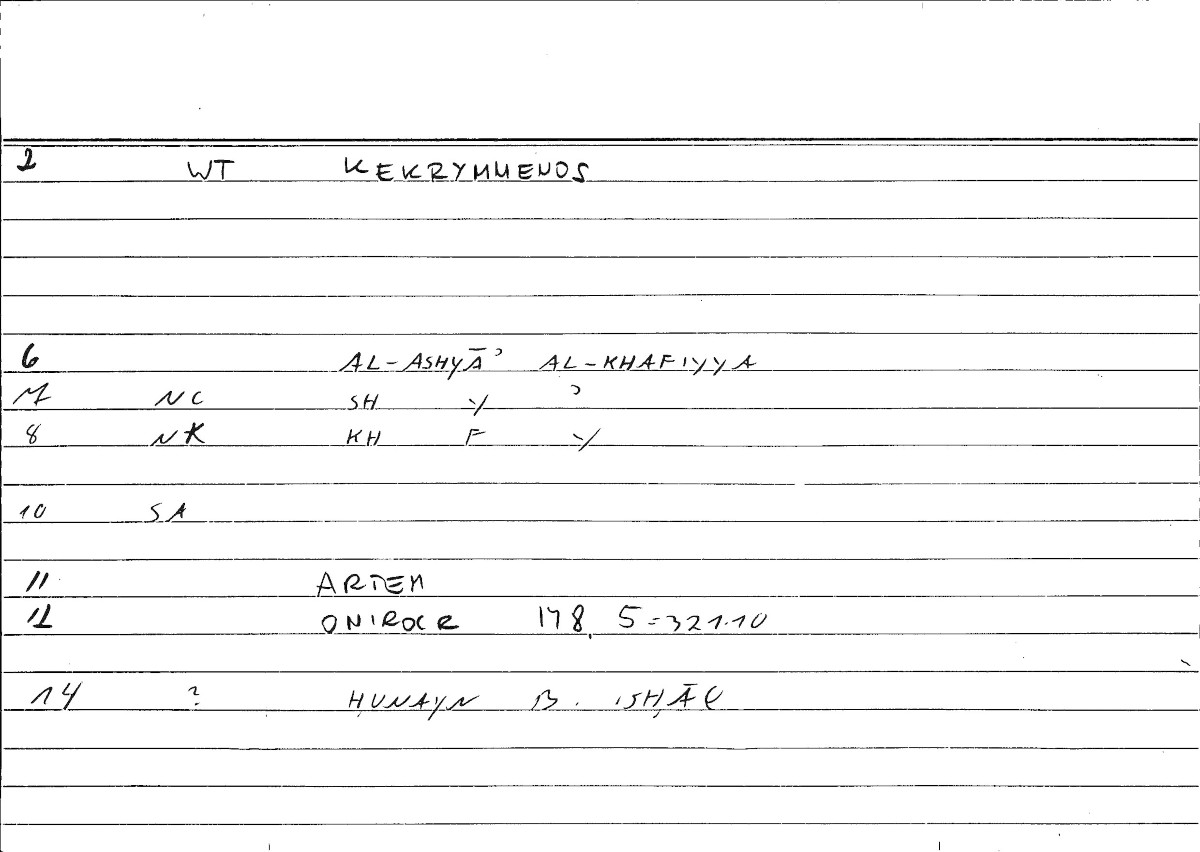 2 WT KEKRYMMENOS
6 AL-ASHYĀʾ AL-KHAFIYYA
7 NC SH Y ʾ
8 NK KH F Y
10 SA
11 ARTEM
12 ONIROCR 178, 5=321.10
14 ? ḤUNAYN B. ISḤĀQ